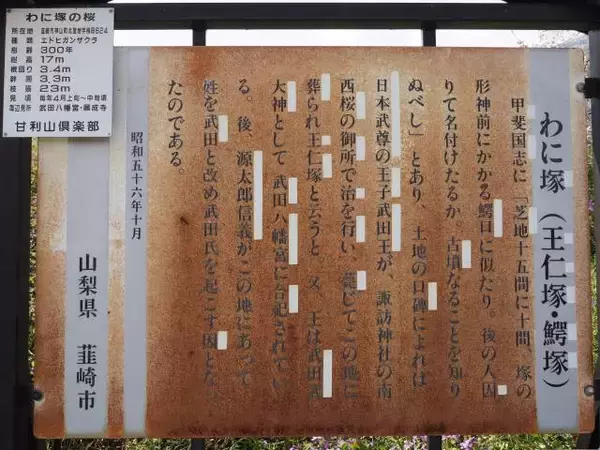 わに塚の桜
所在地 韮崎市神山町北宮地字桜624
種類 エドヒガンザクラ
樹齢 300年
樹高 17m
根廻り 3.4m
幹囲 3.3m
枝張 23m
見頃 毎年4月上旬〜中旬頃
周辺見所 武田八幡宮・願成寺
甘利山倶楽部
わに塚(王仁塚・鰐塚)
甲斐国志に「芝地十五間に十間、塚の
形神前にかかる鰐口に似たり。後の人因
りて名付けたるか。古墳なることを知り
ぬべし」とあり、土地の口碑によれば
日本武尊の王子武田王が、諏訪神社の南
西桜の御所で治を行い、薨じてこの地に
葬られ王仁塚と云うと 又、王は武田武
大神として 武田八幡宮に合祀されてい
る。後、源太郎信義がこの地にあって
姓を武田と改め武田氏を起こす因とな
たのである。
昭和五十六年十月
山梨県 韮崎市